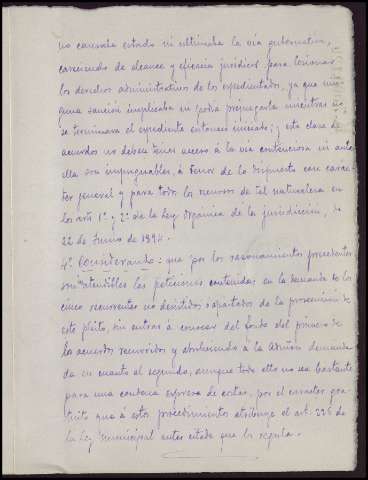 no causaba estado ni ultimaba la vía gubernativa,
careciendo de alcance y eficacia jurídica para lesionar
los derechos administrativos de los expedientados, ya que nin-
guna sanción implicaba ni podía prejuzgarla mientras no
se terminara el expediente entonces incoado; y esta clase de
acuerdos no deben tener acceso á la vía contenciosa ni ante
ella son impugnables, á tenor de lo dispuesto con carac-
ter general y para todo los recursos de tal naturaleza en
los arts 1º y 2º de la Ley Orgánica de la jurisdicción, de
22 de Junio de 1894.
4º Considerando: que por los razonamientos precedentes
son inatendibles las peticiones contenidas en la demanda de los
cinco recurrentes no desistidos o apartados de la prosecución de
este pleito, sin entrar a conocer del fondo del primero de
los acuerdos recurridos y absolviendo á la Admón demanda-
da en cuanto al segundo, aunque todo ello no sea bastante
para una condena expresa de costas, por el caracter gra-
tuito que á estos procedimientos atribuye el art. 226 de
la Ley Municipal antes citada que lo regula.